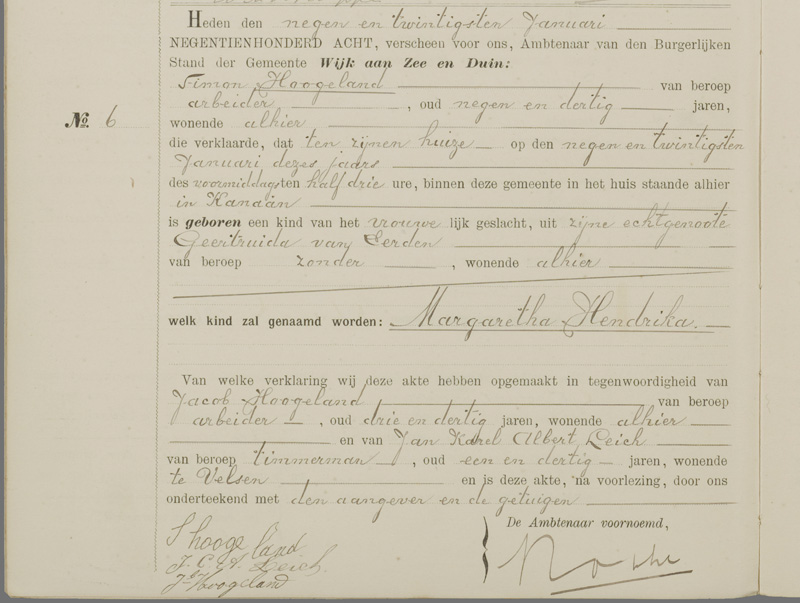 Heden den negen en twintigsten Januari
NEGENTIENHONDERD ACHT, verscheen voor ons, Ambtenaar van den Burgerlijken
Stand der Gemeente Wijk aan Zee en Duin:
Simon Hoogeland van beroep
arbeider, oud negen en dertig jaren,
No. 6
wonende alhier
die verklaarde, dat ten zijnen huize op den negen en twintigsten
Januari dezes jaars
des voormiddags ten half drie ure, binnen deze gemeente in het huis staande alhier
in Kanaän
is geboren een kind van het vrouwe lijk geslacht, uit zijne echtgenoote
Geertruida van Eerden
van beroep zonder, wonende alhier
welk kind zal genaamd worden: Margaretha Hendrika.
Van welke verklaring wij deze akte hebben opgemaakt in tegenwoordigheid van
Jacob Hoogeland van beroep
arbeider, oud drie en dertig jaren, wonende alhier
en van Jan Karel Albert Leich
van beroep timmerman, oud een en dertig jaren, wonende
te Velsen en is deze akte, na voorlezing, door ons
onderteekend met den aangever en de getuigen
De Ambtenaar voornoemd,
S hoogeland
Leich
J. Hoogeland